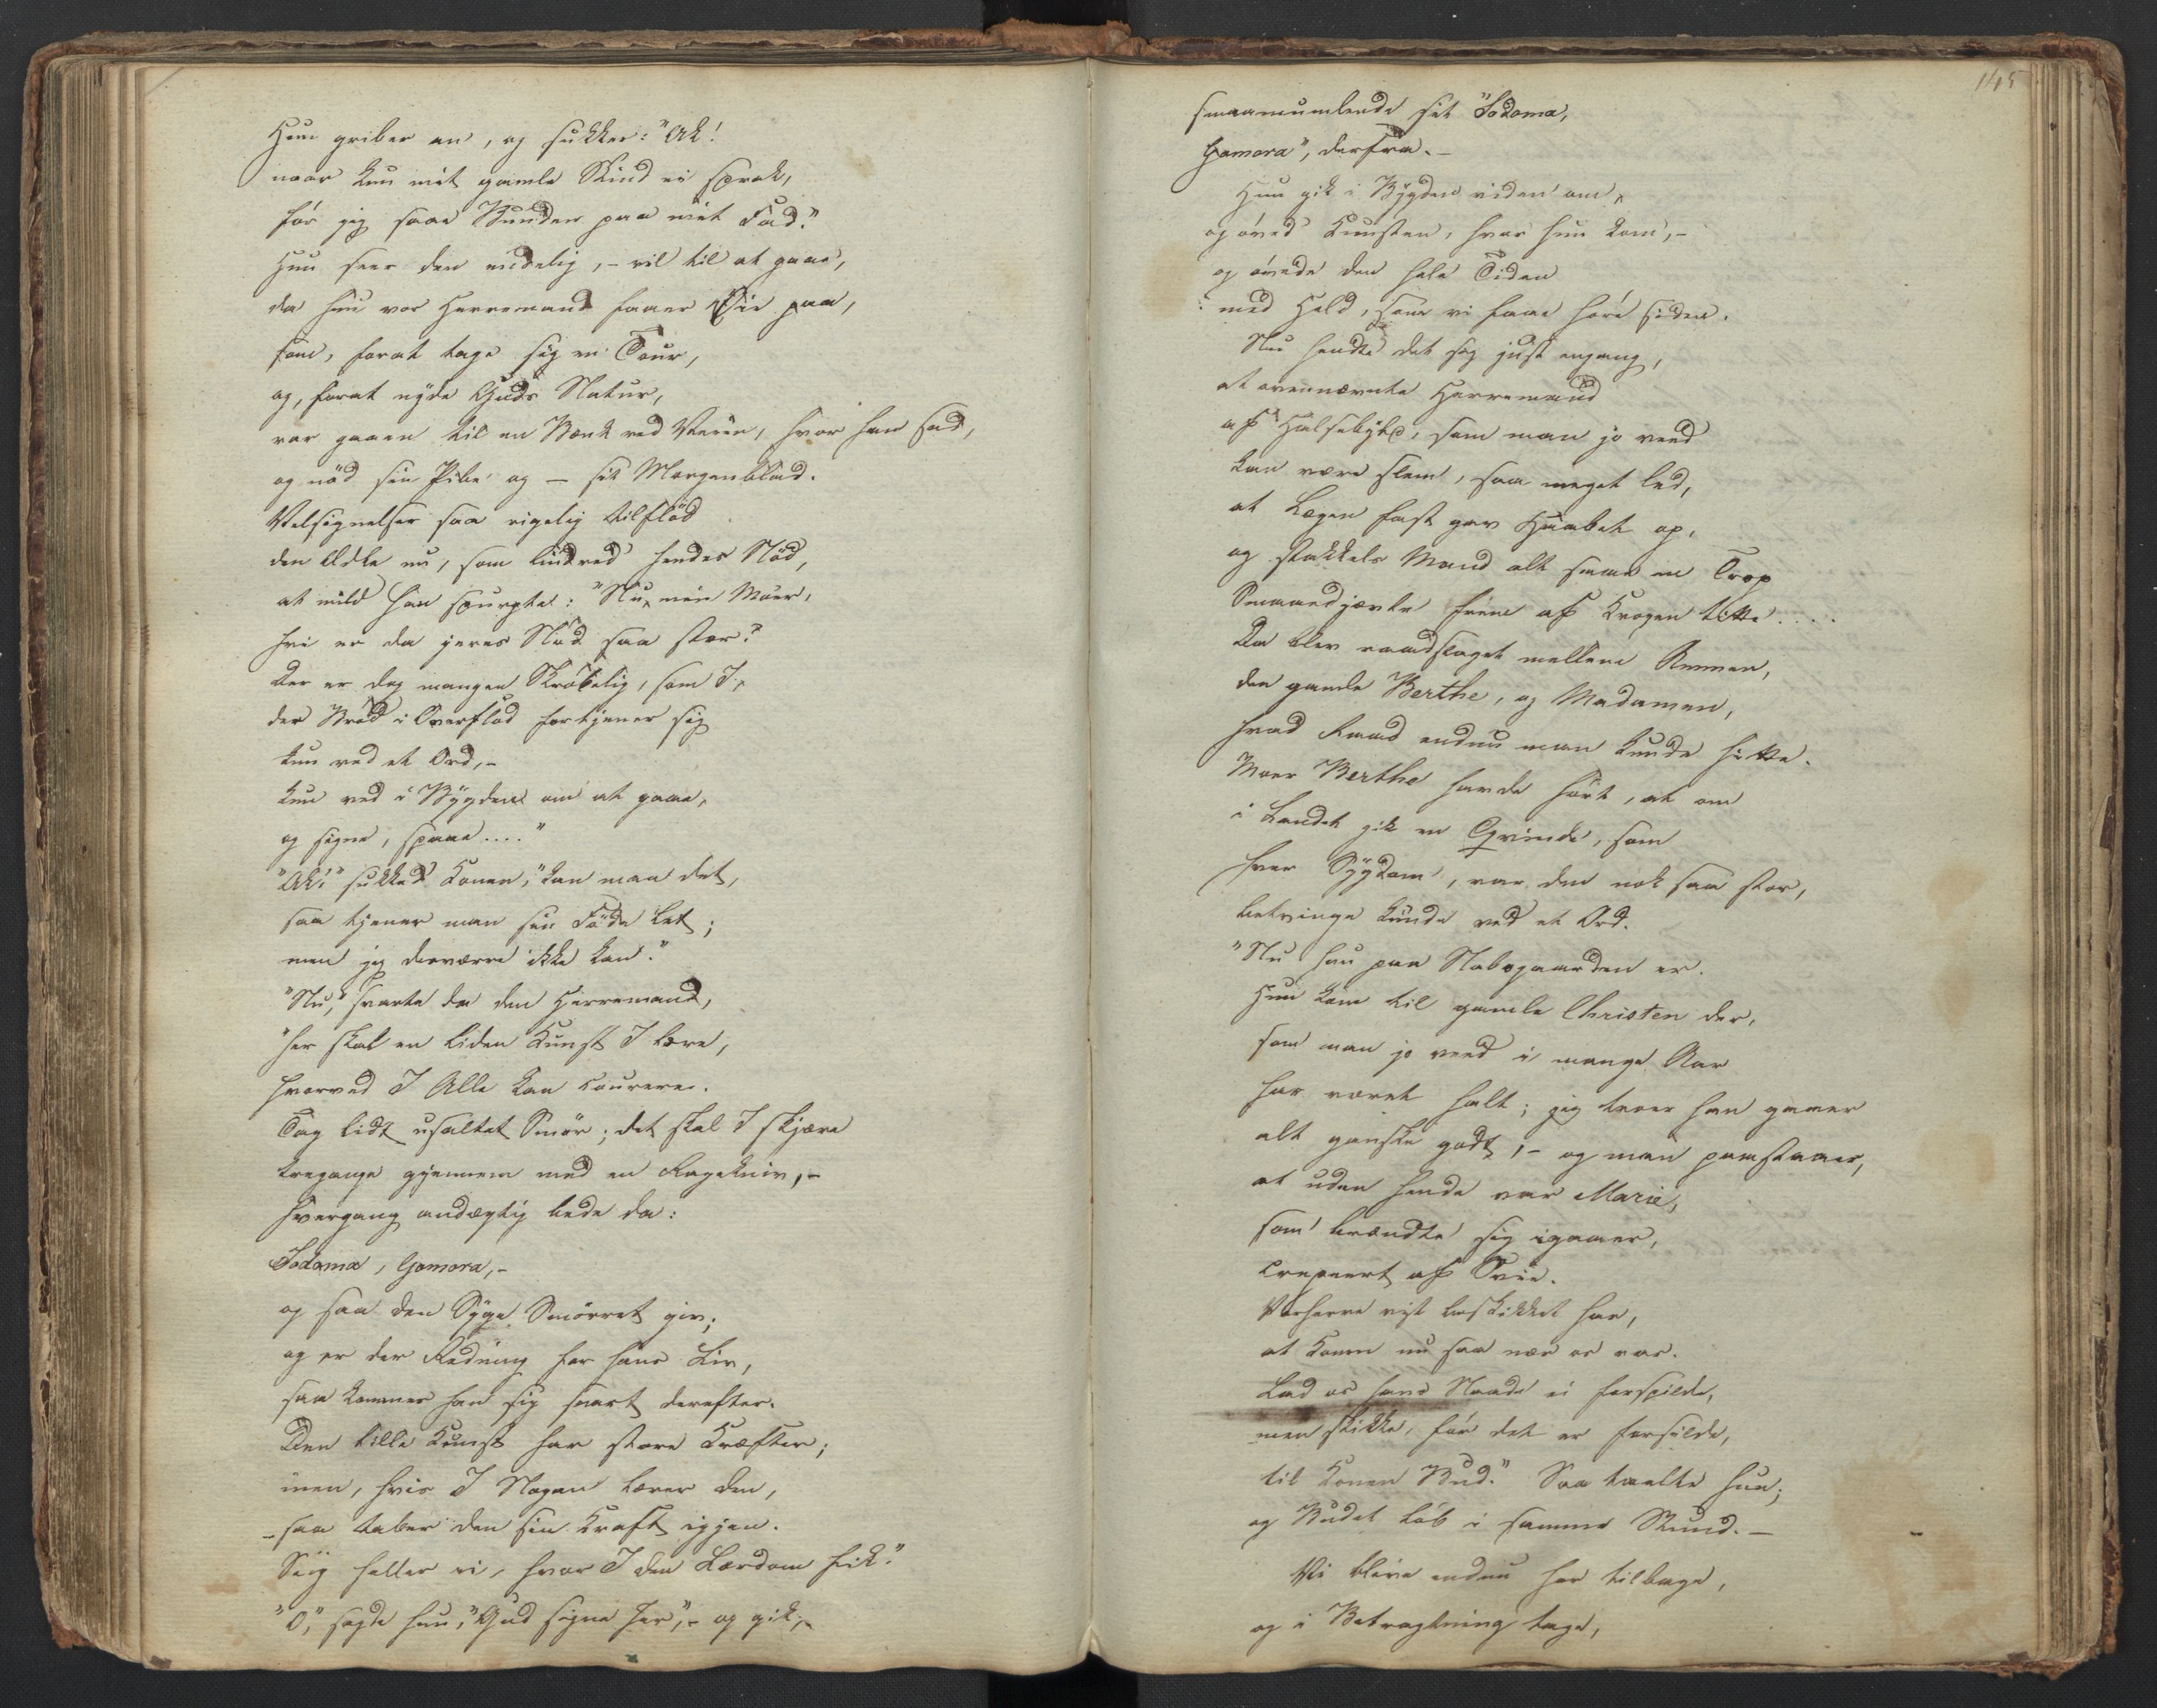 Hun griber an, og sukker: "Ak!
naar kun mit gamle Skind ei sprak,
før jeg saae Bunden paa mit Fad."
Hun seer den endelig, – vil til at gaae,
da hun vor Herremand faaer Øie paa,
som, forat tage sig en Tour,
og, forat nyde Guds Natur,
var gaaen til en Bænk ved Veien, hvor han sad,
og nød sin Pibe og – sit Morgenblad.
Velsignelser saa rigelig tilflød
den Ædle nu, som lindred hendes Nød,
at mild han spurgte: "Nu, min Moer,
hvi er da jeres Nød saa stor?
Der er dog mangen Skrøbelig, som I,
der Brød i Overflod fortjener sig
kun ved et Ord, –
kun ved i Bygden om at gaae,
og signe, spaae...."
"Ak!" sukked Konen, "kan man det,
saa tjener man sin Føde let;
men jeg desværre ikke kan."
"Nu," svarte da den Herremand,
"her skal en liden Kunst I lære,
hvorved I Alle kan courere.
Tag lidt usaltet Smør; det skal I skjære
tregange gjennem med en Ragekniv, –
hvergang andægtig bede da:
Sodoma, Gomora, –
og saa den Syge Smørret giv;
og er der Redning for hans Liv,
saa kommer han sig snart derefter.
Den lille Kunst har store Kræfter;
men, hvis I Nogen lærer den,
– saa taber den sin Kraft igjen.
Siig heller ei, hvor I den Lærdom fik."
"O," sagde hun, "Gud signe Jer", – og gik, –
145
smaamumlende sit "Sodoma,
Gomora", derfra. –
Hun gik i Bygden viden om,
og øved Kunsten, hvor hun kom, –
og øvede den hele Tiden
med Held, som vi faae høre siden.
Nu hendte det sig just engang,
at ovennævnte Herremand
af Halsebyld, som man jo veed
kan være slem, saa meget led,
at Lægen fast gav Haabet op,
og stakkels Mand alt saae en Trop
Smaaedjævle frem af Krogen titte.....
Da blev raadslaget mellem Ammen,
den gamle Berthe, og Madamen,
hvad Raad endnu man kunde hitte.
Moer Berthe havde hørt, at om
i Landet gik en Qvinde, som
hver Sygdom, var den nok saa stor,
betvinge kunde ved et Ord.
"Nu hun paa Nabogaarden er.
Hun kom til gamle Christen der,
som man jo veed i mange Aar
har været halt; jeg troer han gaaer
alt ganske godt, – og man paastaaer,
at uden hende var Marie,
som brændte sig igaaer,
creperet af Svie.
Vorherre vist beskikket har,
at Konen nu saa nær os var.
Lad os hans Naade ei forspilde,
men skikke, før det er forsilde,
til Konen Bud." Saa taelte hun;
og Budet løb i samme Stund. –
Vi blive endnu her tilbage,
og i Betragtning tage,